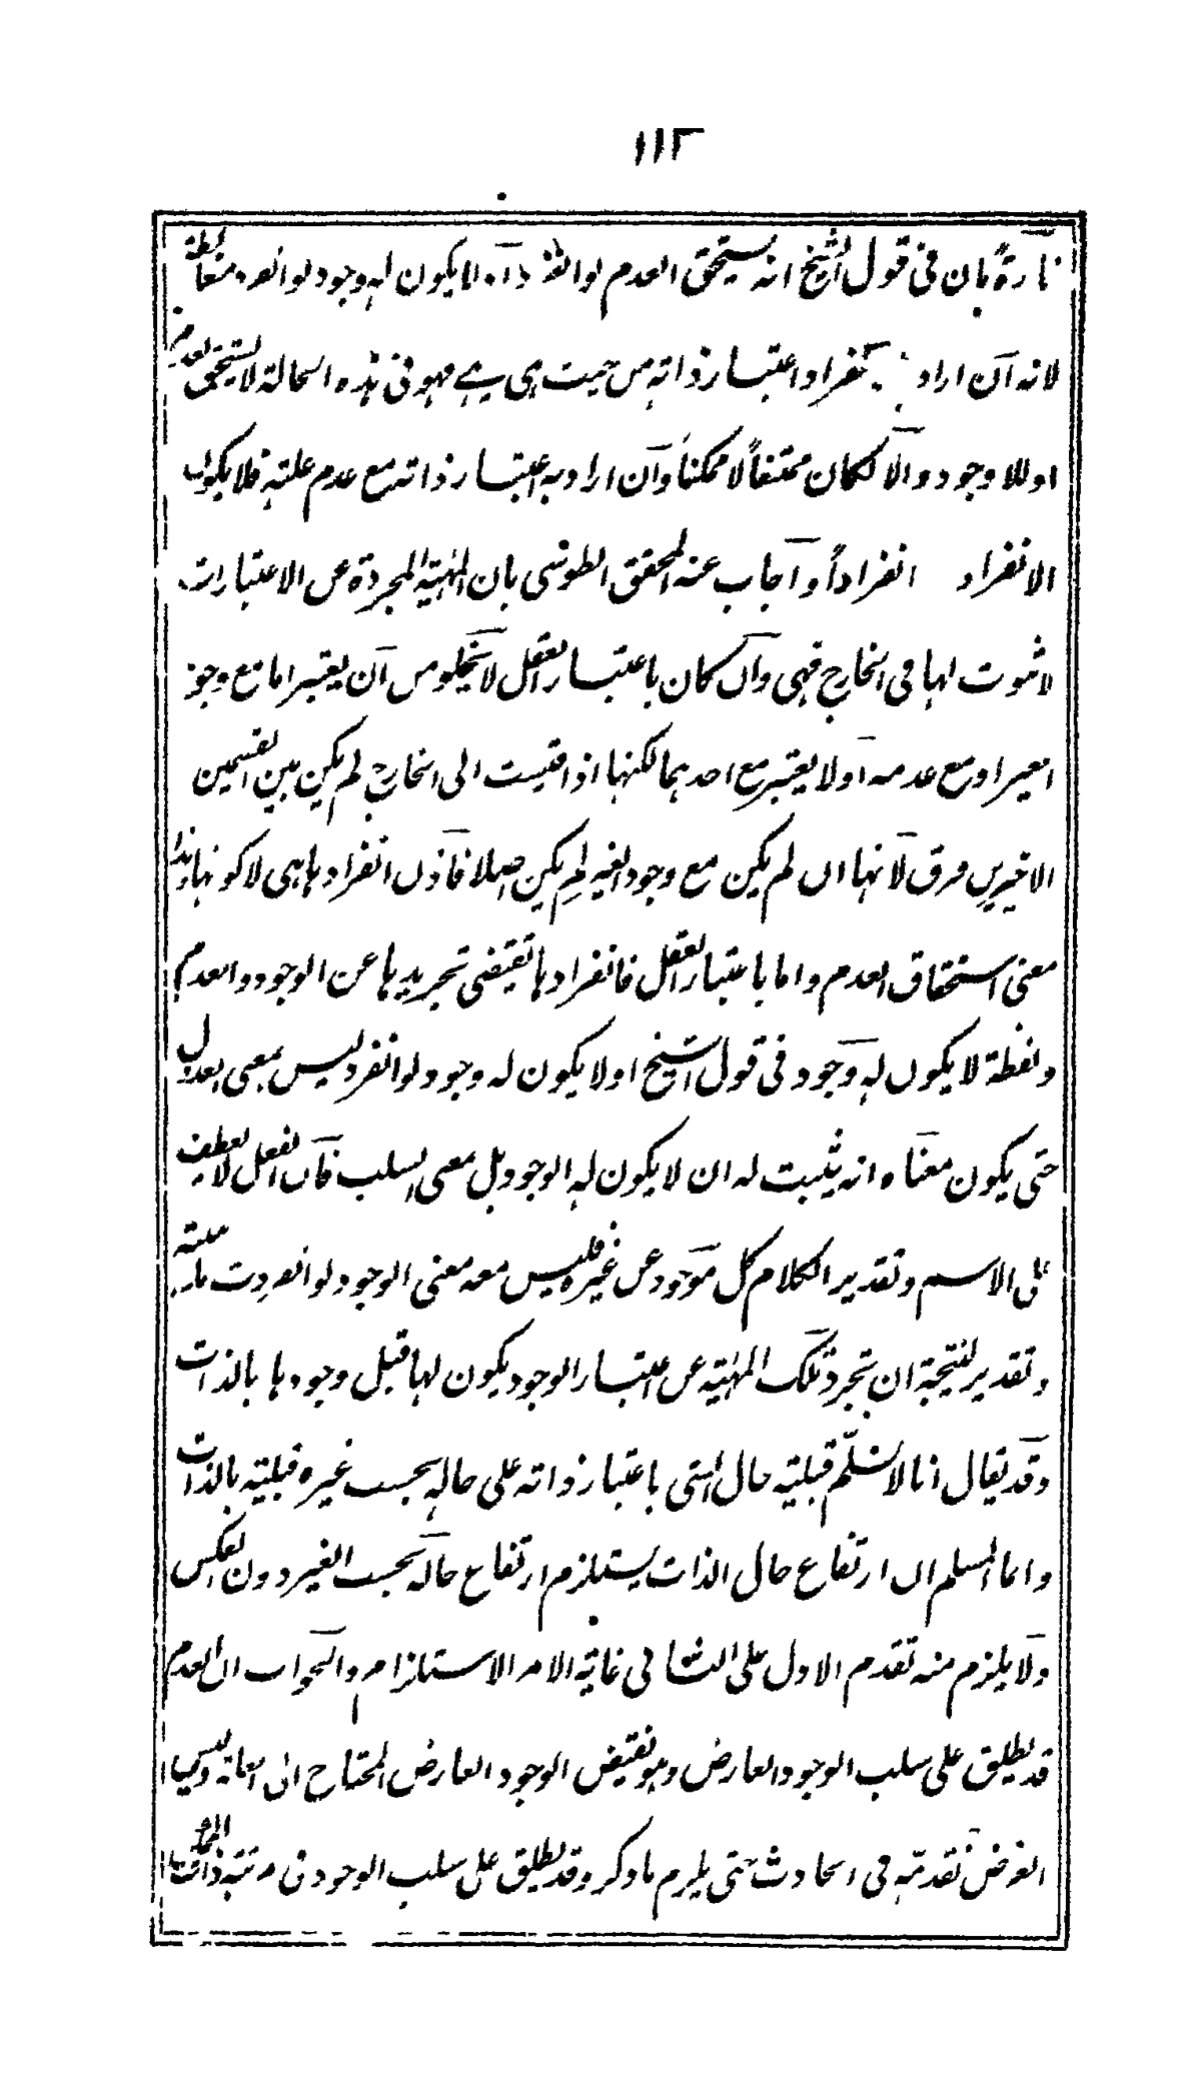 ١١٢
تارةً بان فى قول الشيخ انه يستحق العدم لو انفرد او لا يكون له وجود لو انفرد مغالطة
لانه ان اراد بالانفراد اعتبار ذاته من حيث هى هى فهو فى هذه الحالة لا يستحق العدم
اوللا وجود والا لكان ممتنعاً لا ممكناً وان اراد به اعتبار ذاته مع عدم علته فلا يكون
الانفراد انفراداً واجاب عنه المحقق الطوسى بان المهية المجردة عن الاعتبارات
لا ثبوت لها فى الخارج فهى وان كان باعتبار العقل لا يخلو من ان يعتبر اما مع وجود
الغير او مع عدمه او لا يعتبر مع احدهما لكنها اذا قيست الى الخارج لم يكن بين القسمين
الاخيرين فرق لانها ان لم يكن مع وجود الغير لم يكن اصلا فاذن انفرادها هى لا كونها وهذا
معنى استحقاق العدم واما باعتبار العقل فانفرادها تقتضى تجريدها عن الوجود والعدم
ولفظة لا يكون له وجود فى قول الشيخ او لا يكون له وجود لو انفرد ليس بمعنى العدول
حتى يكون معناه انه يثبت له ان لا يكون له الوجود بل بمعنى السلب فان الفعل لا يعطف
على الاسم وتقدير الكلام كل موجود عن غيره فليس معه معنى الوجود لو انفردت ماهيته
وتقدير النتيجة ان تجرد تلك المهية عن اعتبار الوجود يكون لها قبل وجودها بالذات
وقد يقال انا لا نسلّم قبلية حال الشى باعتبار ذاته على حاله بحسب غيره قبلية بالذات
وانما المسلم ان ارتفاع حال الذات يستلزم ارتفاع حاله بحسب الغير دون العكس
ولا يلزم منه تقدم الاول على الثانى غاية الامر الاستلزام والجواب ان العدم
قد يطلق على سلب الوجود العارض وهو نقيض الوجود العارض المحتاج الى العلة وليس
الغرض تقدمه فى الحادث حتى يلزم ما ذكر وقد يطلق على سلب الوجود فى مرتبة ذات